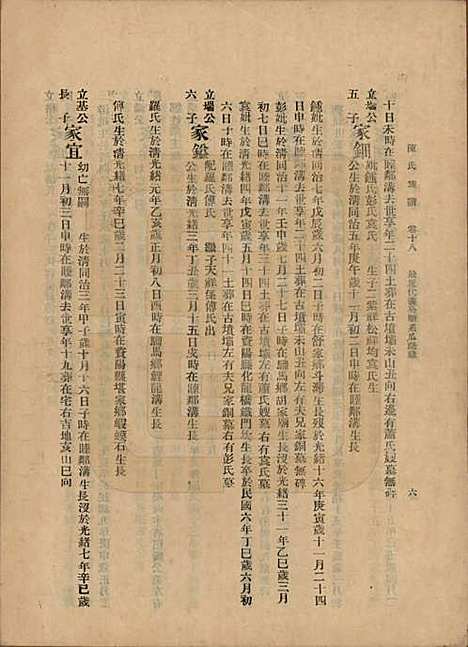 陳氏族譜 卷十八 六
十日未時在睦鄰溝去世享年二十四土葬在古墳壩禾山丑向右邊有蕭氏嫂墓無碑
立墖公
五子家鈿 妣鍾氏彭氏袁氏 生子二 業祥松祥均袁氏生
公生於清同治五年庚午歲十一月初二日申時在睦鄰溝生長
鍾妣生於清同治七年戊辰歲六月初二日子時在舒家鄉斗溯生長歿於光緒十六年庚寅歲十一月二十四
日申時在睦鄰溝去世享年二十四土葬在古墳壩禾山丑向左有夫兄家銅墓無碑
彭妣生於清同治十一年壬申歲七月二十七日子時在臨馬鄉胡家廟生長歿於光緒三十一年乙巳歲三月
初七日巳時在睦鄰溝去世享年三十四土葬在古墳壩左有蕭氏嫂墓右有袁氏墓
袁妣生於清光緒四年戊寅歲六月初五日戌時在資陽縣化龍橋鐵門坎生長卒於民國六年丁巳歲六月初
六日子時在睦鄰溝去世享年四十一土葬在古墳壩左有夫兄家銅墓右有彭氏墓
立墖公
六子家鎰 配羅氏傅氏 繼子天祥係傅氏出
公生於清光緒三年丁丑歲三月十五日亥時在睦鄰溝生長
羅氏生於清光緒元年乙亥歲正月初八日酉時在臨馬鄉鯉龍溝生長
傅氏生於清光緒七年辛巳歲二月二十三日寅時在資陽縣堪家鄉蝦蟆石生長
立基公
長子家宜 幼亡無嗣 生於清同治三年甲子歲十月十六日子時在睦鄰溝生長沒於光緒七年辛巳歲
十二月初三日申時在睦鄰溝去世享年十九葬在宅右吉地亥山巳向